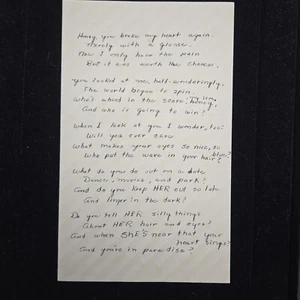 Honey, you broke my heart again.
Merely with a glance.
Now I only have the pain
But it was worth the chance.
You looked at me, half-wonderingly.
The world began to spin.
Who's ahead in the score, this time, honey,
And who is going to win?
When I look at you I wonder, too:
Will you ever care
What makes your eyes so nice, so blue?
Who put the wave in your hair?
What do you do out on a date
Dance, movies, and park?
And do you keep HER out so late
And linger in the dark?
Do you tell HER silly things
About HER hair and eyes?
And when SHE'S near that your heart sings?
And you're in paradise?